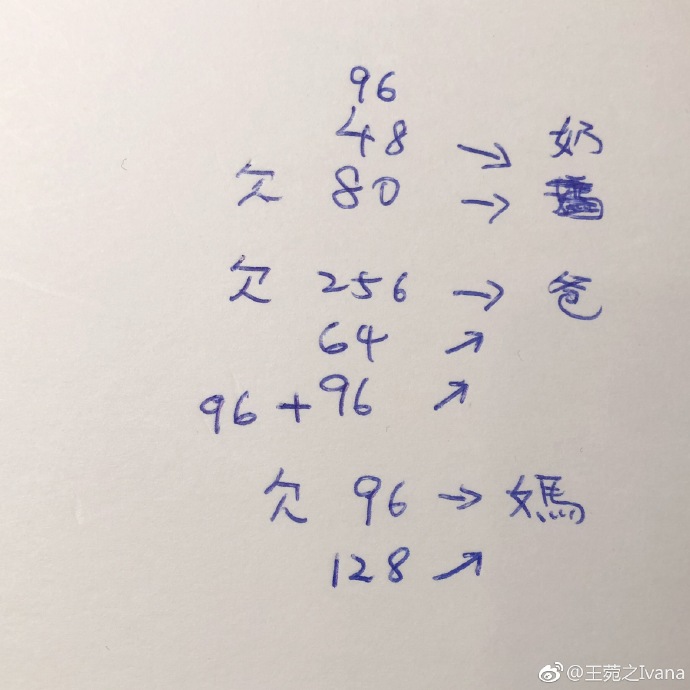 96
48 → 奶
欠 80 →
欠 256 → 爸
64 ↗
96 + 96 ↗
欠 96 → 媽
128 ↗
@王菀之Ivana